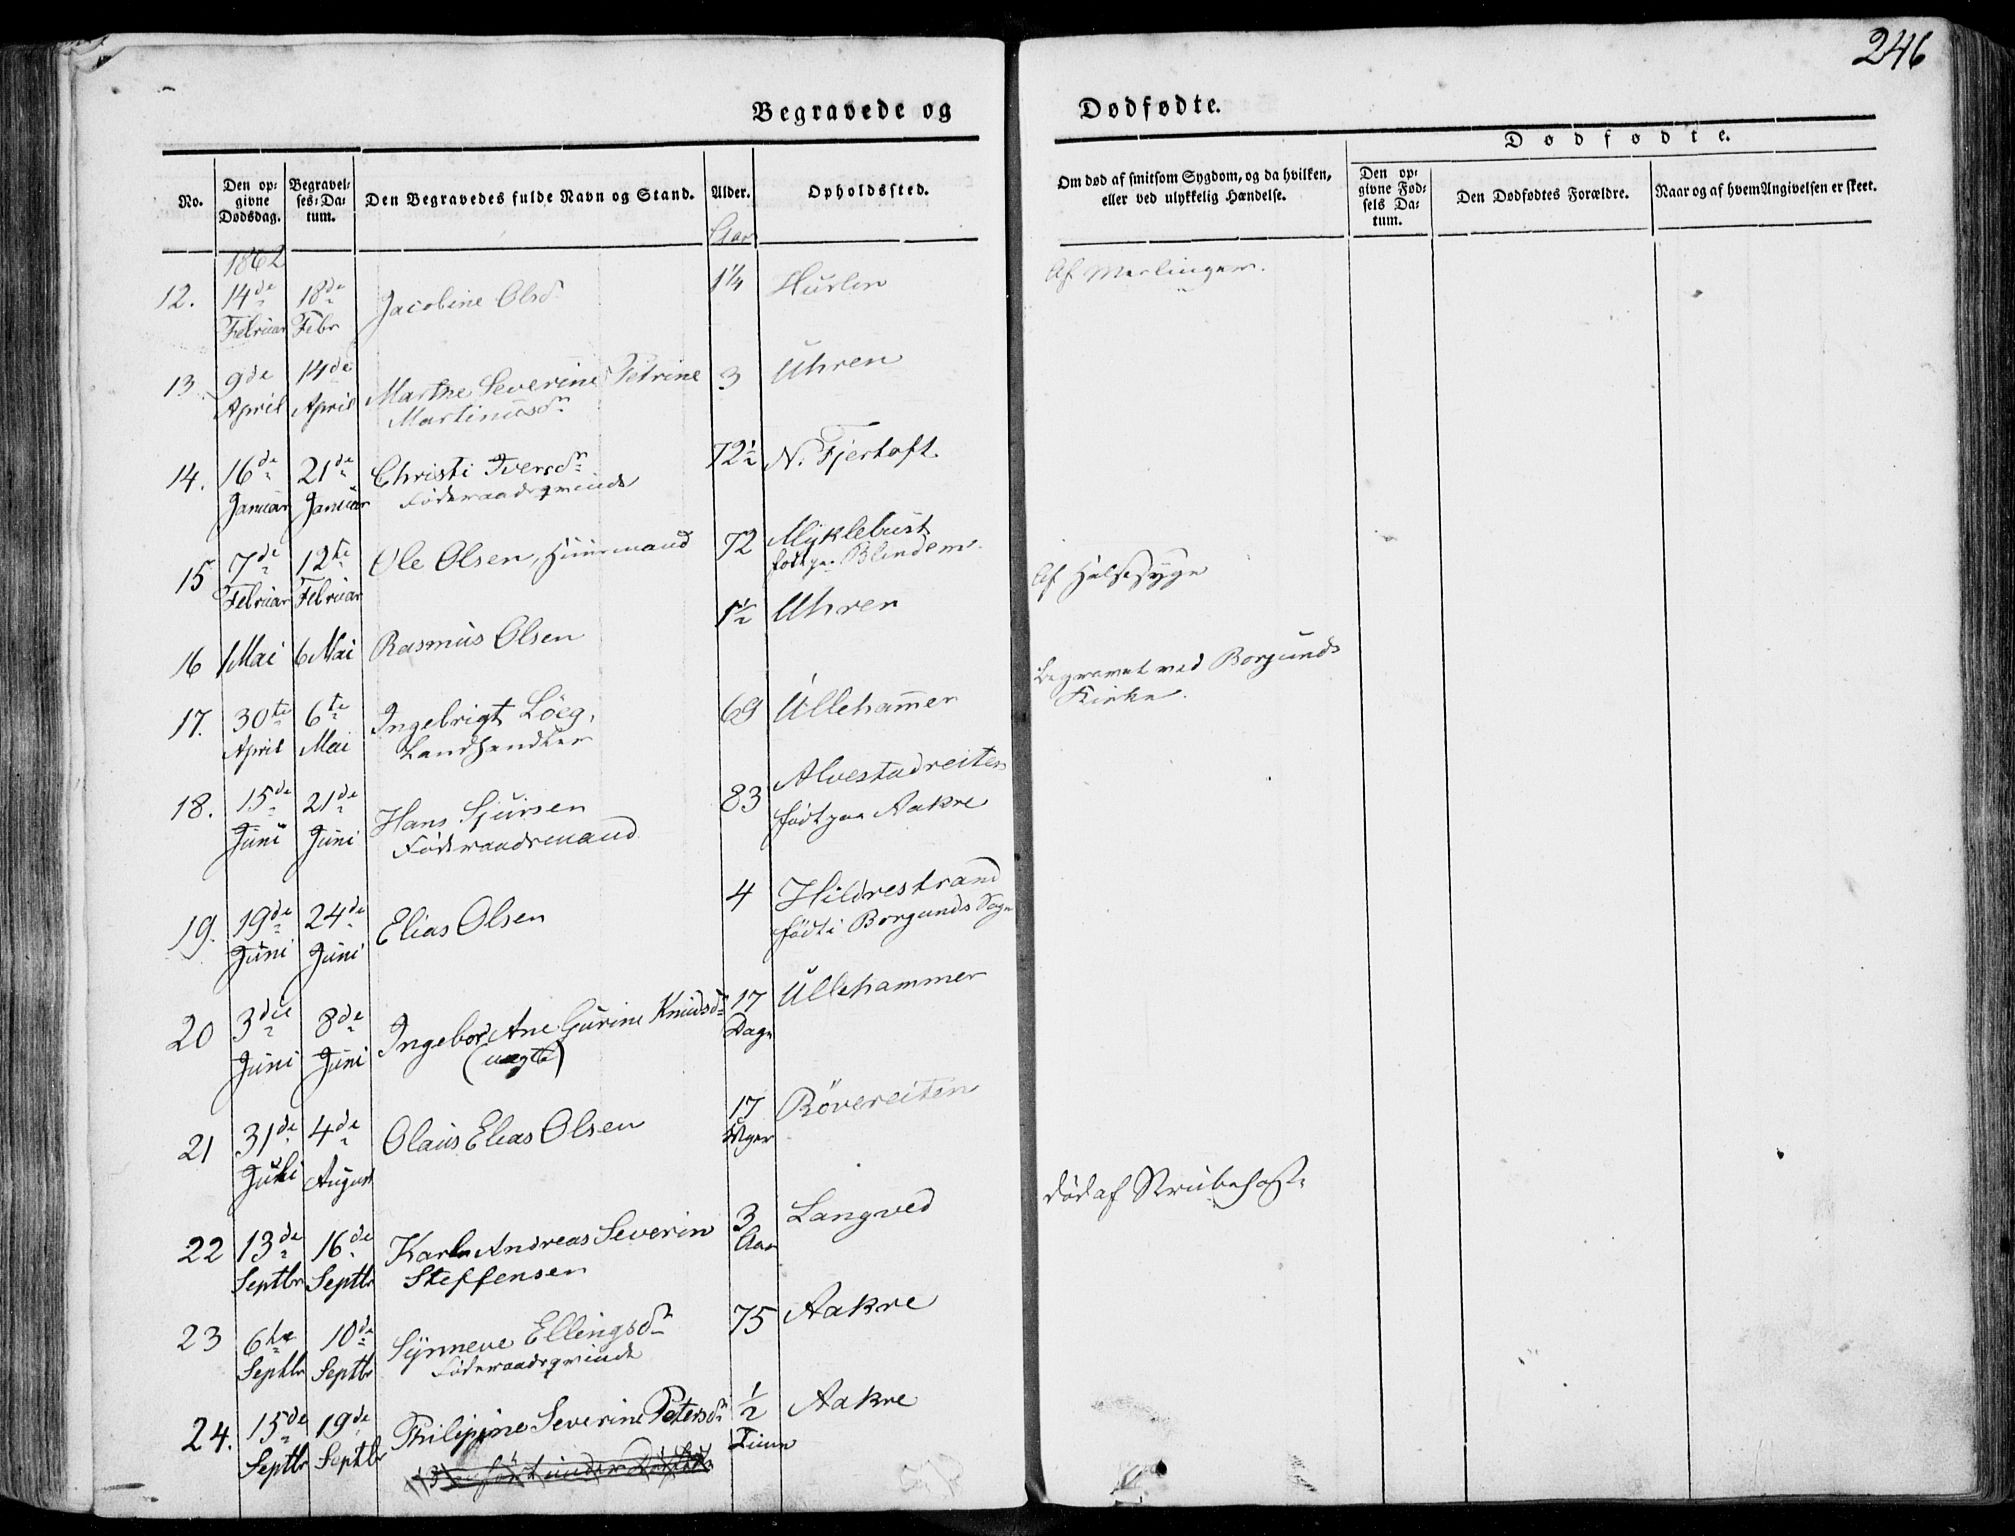 246
Begravede og Dødfødte.
Dødfødte.
No.
Den op-
givne
Dødsdag.
Begravel-
ses-Da-
tum.
Den Begravedes fulde Navn og Stand.
Alder.
Opholdssted.
Om død af smitsom Sygdom, og da hvilken,
eller ved ulykkelig Hændelse.
Den op-
givne Fød-
sels Da-
tum.
Den Dødfødtes Forældre.
Naar og af hvem Angivelsen er skeet.
Aar
1862
12. 14de Februar 18de Febr Jacobine Olsd. 1¼ Hurlen Af Merlinger.
13. 9de April 14de April Marthe Severine Petrine 3 Uhren
Martinusdr
14. 16de Januar 21de Januar Christi Iversdr 72½ N. Fjertoft.
Føderaadsqvinde
15 7de Februar 12te Februar Ole Olsen, Huusmand 72 Myklebust
født paa Blindem.
16 1 Mai 6 Mai Rasmus Olsen 1½ Uhren Af Halssyge
17. 30te April 6te Mai Ingebrigt Löeg, 69 Ullehammer Begravet ved Borgunds
Landhandler Kirke.
18. 15de Juni 21de Juni Hans Sjursen 83 Alvestadreiten
Føderaadsmand født paa Aakre
19. 19de Juni 24de Juni Elias Olsen 4 Hildrestrand
født i Borgunds Sogn
20 3die Juni 8de Juni Ingebor Ane Gurine Knudsdr 17 Dage Ullehammer
(uægte)
21 31de Juli 4de August Olaus Elias Olsen 17 Uger Røvereiten
22 13de Septbr 16de Septbr Karl Andreas Severin 3 Aar Langved død af Strubehoste
Steffensen
23 6te Septbr 10de Septbr Synneve Ellingsdr 75 Aakre
Føderaadsqvinde
24. 15de Septbr 19de Septbr Philippine Severine Petersdr ½ Time Aakre